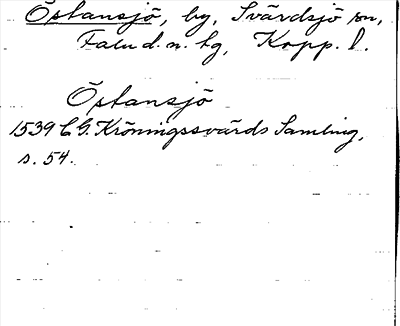 Östansjö, by, Svärdsjö sn,
Falu d. n. tg, Kopp. l.
Östansjö
1539 C G. Kröningssvärds Samling,
s. 54.